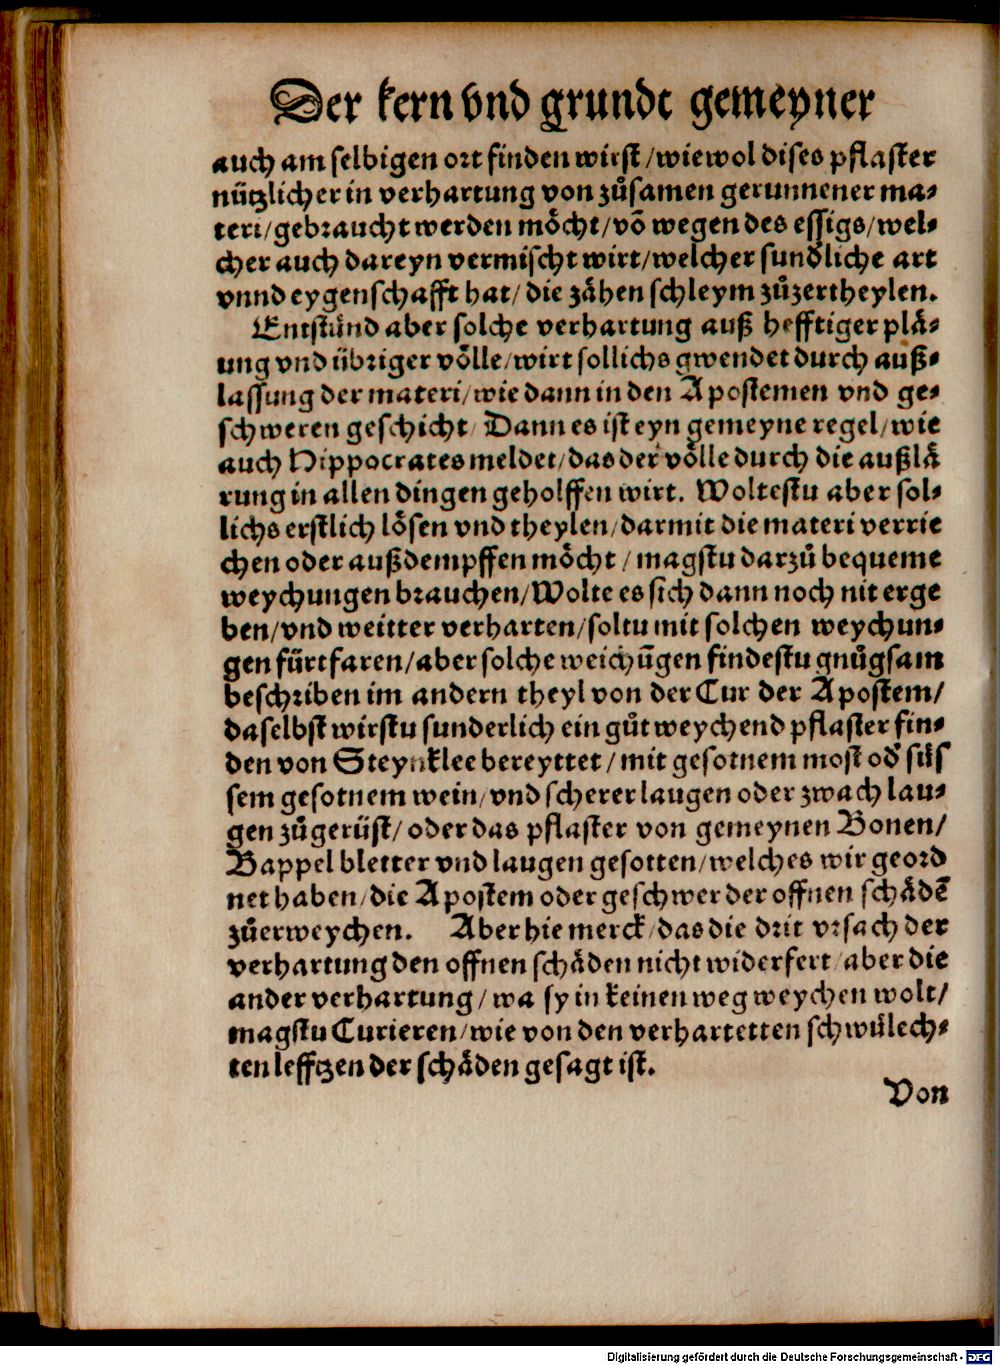 Der kern vnd grundt gemeyner
auch am selbigen ort finden wirst / wiewol dises pflaster
nützlicher in verhartung von zůsamen gerunnener ma⸗
teri / gebraucht werden möcht / võ wegen des essigs / wel⸗
cher auch dareyn vermischt wirt / welcher sundliche art
vnnd eygenschafft hat / die zähen schleym zůzertheylen.
Entstünd aber solche verhartung auß hefftiger plä⸗
ung vnd übriger völle / wirt sollichs gwendet durch auß⸗
lassung der materi / wie dann in den Apostemen vnd ge⸗
schweren geschicht / Dann es ist eyn gemeyne regel / wie
auch Hippocrates meldet / das der völle durch die außlä
rung in allen dingen geholffen wirt. Woltestu aber sol⸗
lichs erstlich lösen vnd theylen / darmit die materi verrie
chen oder außdempffen möcht / magstu darzů bequeme
weychungen brauchen / Wolte es sich dann noch nit erge
ben / vnd weitter verharten / soltu mit solchen weychun⸗
gen fürtfaren / aber solche weichũgen findestu gnůgsam
beschriben im andern theyl von der Cur der Apostem /
daselbst wirstu sunderlich ein gůt weychend pflaster fin⸗
den von Steynklee bereyttet / mit gesotnem most od̕ süs
sem gesotnem wein / vnd scherer laugen oder zwach lau⸗
gen zůgerüst / oder das pflaster von gemeynen Bonen /
Bappel bletter vnd laugen gesotten / welches wir geord
net haben / die Apostem oder geschwer der offnen schädẽ
zůerweychen. Aber hie merck / das die drit vrsach der
verhartung den offnen schäden nicht widerfert / aber die
ander verhartung / wa sy in keinen weg weychen wolt /
magstu Curieren / wie von den verhartetten schwülech⸗
ten lefftzen der schäden gesagt ist.
Von
Digitalisierung gefördert durch die Deutsche Forschungsgemeinschaft - DFG